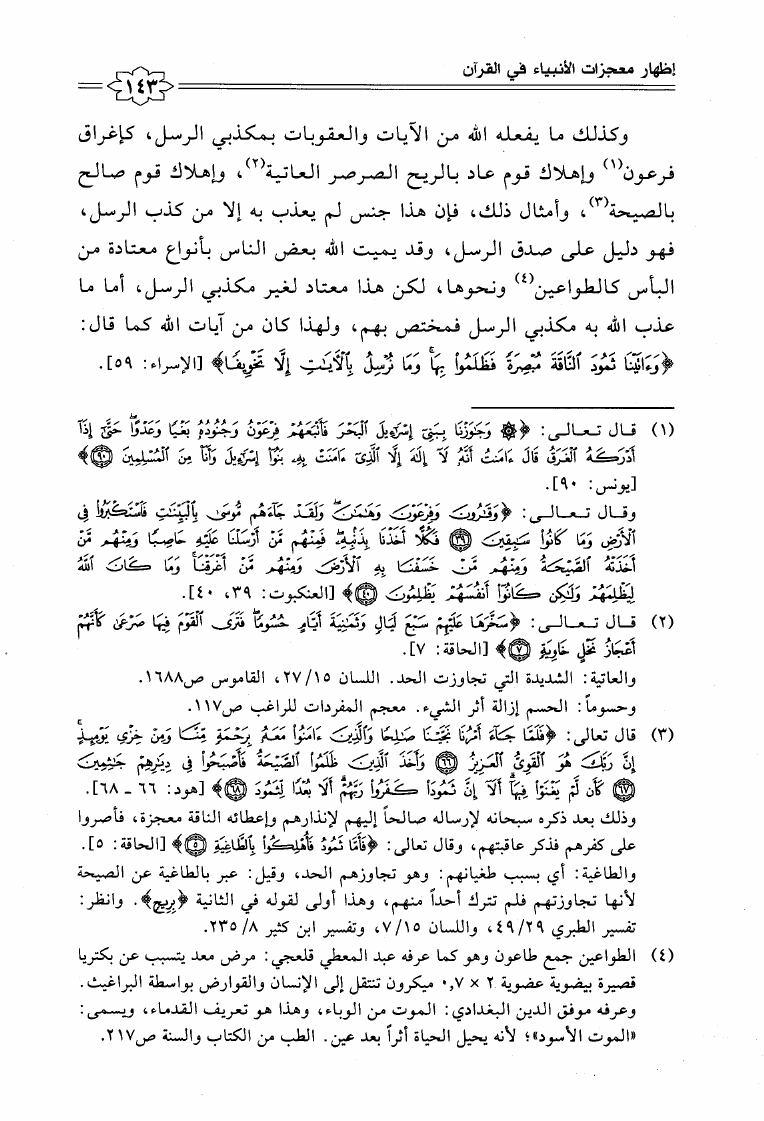 إظهار معجزات الأنبياء في القرآن
١٤٣
وكذلك ما يفعله الله من الآيات والعقوبات بمكذبي الرسل، كإغراق
فرعون(١) وإهلاك قوم عاد بالريح الصرصر العاتية(٢)، وإهلاك قوم صالح
بالصيحة(٣)، وأمثال ذلك، فإن هذا جنس لم يعذب به إلا من كذب الرسل،
فهو دليل على صدق الرسل، وقد يميت الله بعض الناس بأنواع معتادة من
البأس كالطواعين(٤) ونحوها، لكن هذا معتاد لغير مكذبي الرسل، أما ما
عذب الله به مكذبي الرسل فمختص بهم، ولهذا كان من آيات الله كما قال:
﴿وَءَاتَيْنَا ثَمُودَ النَّاقَةَ مُبْصِرَةً فَظَلَمُوا۟ بِهَا ۚ وَمَا نُرْسِلُ بِالْـَٔايَـٰتِ إِلَّا تَخْوِيفًا﴾ [الإسراء: ٥٩].
(١) قال تعالى: ﴿۞ وَجَـٰوَزْنَا بِبَنِىٓ إِسْرَٰٓءِيلَ الْبَحْرَ فَأَتْبَعَهُمْ فِرْعَوْنُ وَجُنُودُهُۥ بَغْيًا وَعَدْوًا ۖ حَتَّىٰٓ إِذَآ
أَدْرَكَهُ الْغَرَقُ قَالَ ءَامَنتُ أَنَّهُۥ لَآ إِلَـٰهَ إِلَّا الَّذِىٓ ءَامَنَتْ بِهِۦ بَنُوٓا۟ إِسْرَٰٓءِيلَ وَأَنَا۠ مِنَ الْمُسْلِمِينَ ﴿٩٠﴾﴾
[يونس: ٩٠].
وقال تعالى: ﴿وَقَـٰرُونَ وَفِرْعَوْنَ وَهَـٰمَـٰنَ ۖ وَلَقَدْ جَآءَهُم مُّوسَىٰ بِالْبَيِّنَـٰتِ فَاسْتَكْبَرُوا۟ فِى
الْأَرْضِ وَمَا كَانُوا۟ سَـٰبِقِينَ ﴿٣٩﴾ فَكُلًّا أَخَذْنَا بِذَنۢبِهِۦ ۖ فَمِنْهُم مَّنْ أَرْسَلْنَا عَلَيْهِ حَاصِبًا وَمِنْهُم مَّنْ
أَخَذَتْهُ الصَّيْحَةُ وَمِنْهُم مَّنْ خَسَفْنَا بِهِ الْأَرْضَ وَمِنْهُم مَّنْ أَغْرَقْنَا ۚ وَمَا كَانَ اللَّهُ
لِيَظْلِمَهُمْ وَلَـٰكِن كَانُوٓا۟ أَنفُسَهُمْ يَظْلِمُونَ ﴿٤٠﴾﴾ [العنكبوت: ٣٩، ٤٠].
(٢) قال تعالى: ﴿سَخَّرَهَا عَلَيْهِمْ سَبْعَ لَيَالٍ وَثَمَـٰنِيَةَ أَيَّامٍ حُسُومًا فَتَرَى الْقَوْمَ فِيهَا صَرْعَىٰ كَأَنَّهُمْ
أَعْجَازُ نَخْلٍ خَاوِيَةٍ ﴿٧﴾﴾ [الحاقة: ٧].
والعاتية: الشديدة التي تجاوزت الحد. اللسان ٢٧/١٥، القاموس ص١٦٨٨.
وحسوماً: الحسم إزالة أثر الشيء. معجم المفردات للراغب ص١١٧.
(٣) قال تعالى: ﴿فَلَمَّا جَآءَ أَمْرُنَا نَجَّيْنَا صَـٰلِحًا وَالَّذِينَ ءَامَنُوا۟ مَعَهُۥ بِرَحْمَةٍ مِّنَّا وَمِنْ خِزْىِ يَوْمِئِذٍ ۗ
إِنَّ رَبَّكَ هُوَ الْقَوِىُّ الْعَزِيزُ ﴿٦٦﴾ وَأَخَذَ الَّذِينَ ظَلَمُوا۟ الصَّيْحَةُ فَأَصْبَحُوا۟ فِى دِيَـٰرِهِمْ جَـٰثِمِينَ
﴿٦٧﴾ كَأَن لَّمْ يَغْنَوْا۟ فِيهَآ ۗ أَلَآ إِنَّ ثَمُودَا۟ كَفَرُوا۟ رَبَّهُمْ ۗ أَلَا بُعْدًا لِّثَمُودَ ﴿٦٨﴾﴾ [هود: ٦٦ - ٦٨].
وذلك بعد ذكره سبحانه لإرساله صالحاً إليهم لإنذارهم وإعطائه الناقة معجزة، فأصروا
على كفرهم فذكر عاقبتهم، وقال تعالى: ﴿فَأَمَّا ثَمُودُ فَأُهْلِكُوا۟ بِالطَّاغِيَةِ ﴿٥﴾﴾ [الحاقة: ٥].
والطاغية: أي بسبب طغيانهم: وهو تجاوزهم الحد، وقيل: عبر بالطاغية عن الصيحة
لأنها تجاوزتهم فلم تترك أحداً منهم، وهذا أولى لقوله في الثانية ﴿بِرِيحٍ﴾. وانظر:
تفسير الطبري ٤٩/٢٩، واللسان ٧/١٥، وتفسير ابن كثير ٢٣٥/٨.
(٤) الطواعين جمع طاعون وهو كما عرفه عبد المعطي قلعجي: مرض معد يتسبب عن بكتريا
قصيرة بيضوية عضوية ٢ × ٠,٧ ميكرون تنتقل إلى الإنسان والقوارض بواسطة البراغيث.
وعرفه موفق الدين البغدادي: الموت من الوباء، وهذا هو تعريف القدماء، ويسمى:
«الموت الأسود»؛ لأنه يحيل الحياة أثراً بعد عين. الطب من الكتاب والسنة ص٢١٧.